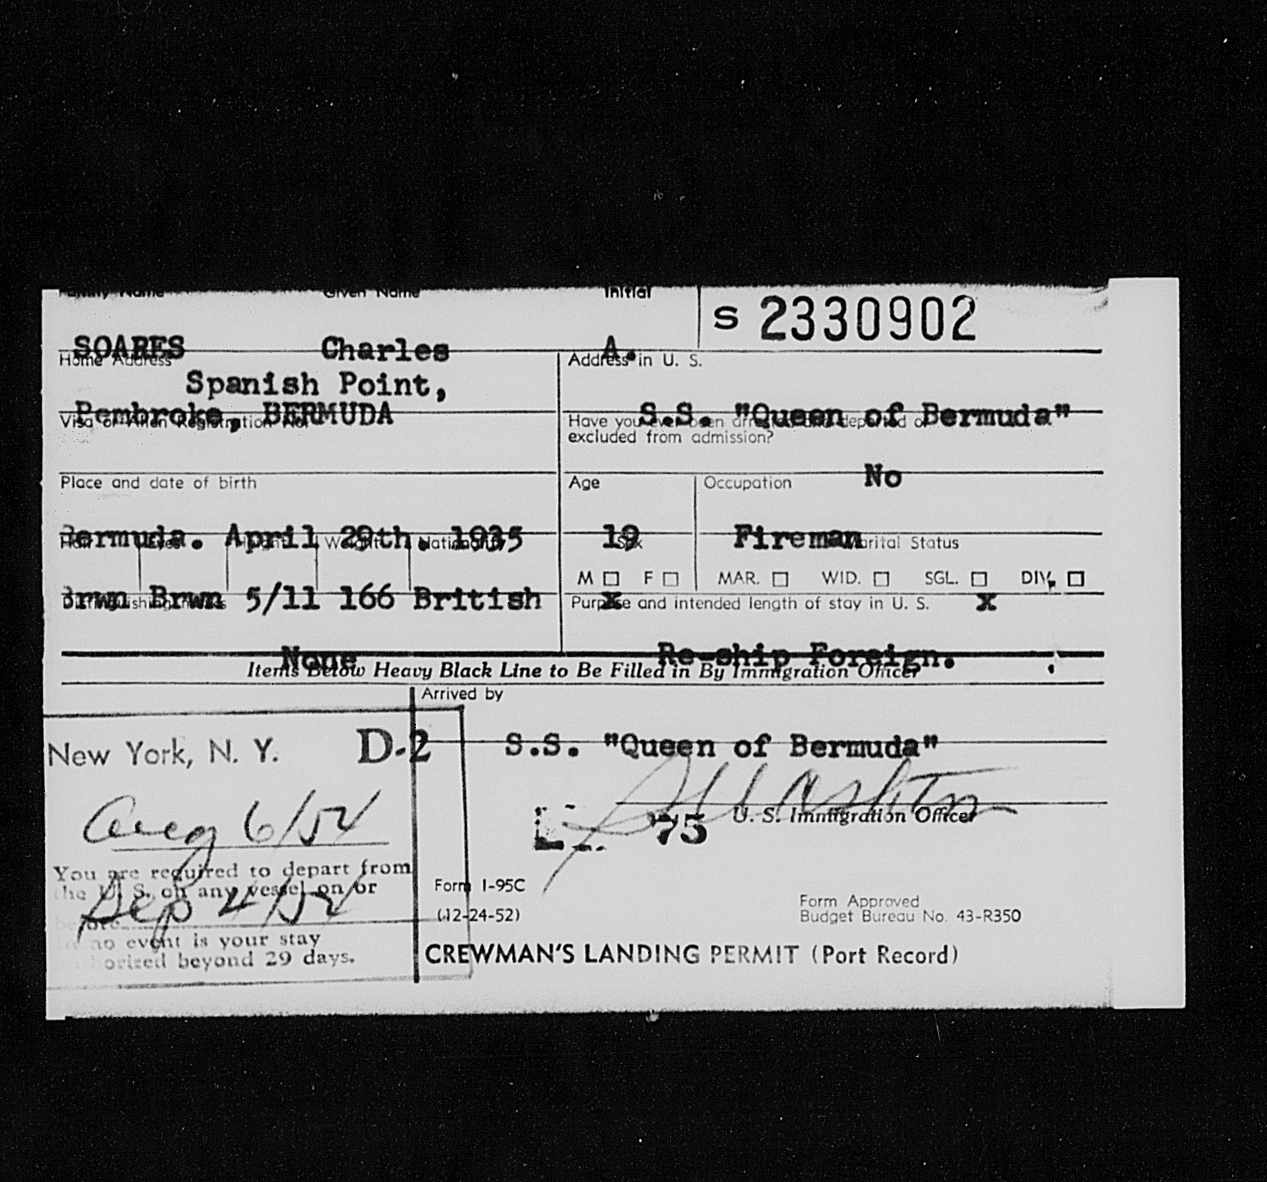 Family Name Given Name Initial
S 2330902
SOARES Charles A.
Home Address
Address in U. S.
Spanish Point,
Pembroke, BERMUDA
S.S. "Queen of Bermuda"
Visa or Alien Registration No.
Have you ever been arrested and deported or
excluded from admission?
No
Place and date of birth
Age
Occupation
Bermuda. April 29th. 1935
19
Fireman
Hair Eyes Height Weight Nationality
Sex
Marital Status
M F MAR. WID. SGL. DIV.
Brwn Brwn 5/11 166 British
x
x
Distinguishing marks
Purpose and intended length of stay in U. S.
None
Re-ship Foreign.
Items Below Heavy Black Line to Be Filled in By Immigration Officer
Arrived by
New York, N. Y. D-2
S.S. "Queen of Bermuda"
Aug 6/54
'75
U. S. Immigration Officer
You are required to depart from
the U. S. on any vessel on or
before
Sep 4/54
In no event is your stay
authorized beyond 29 days.
Form I-95C
(12-24-52)
Form Approved
Budget Bureau No. 43-R350
CREWMAN'S LANDING PERMIT (Port Record)